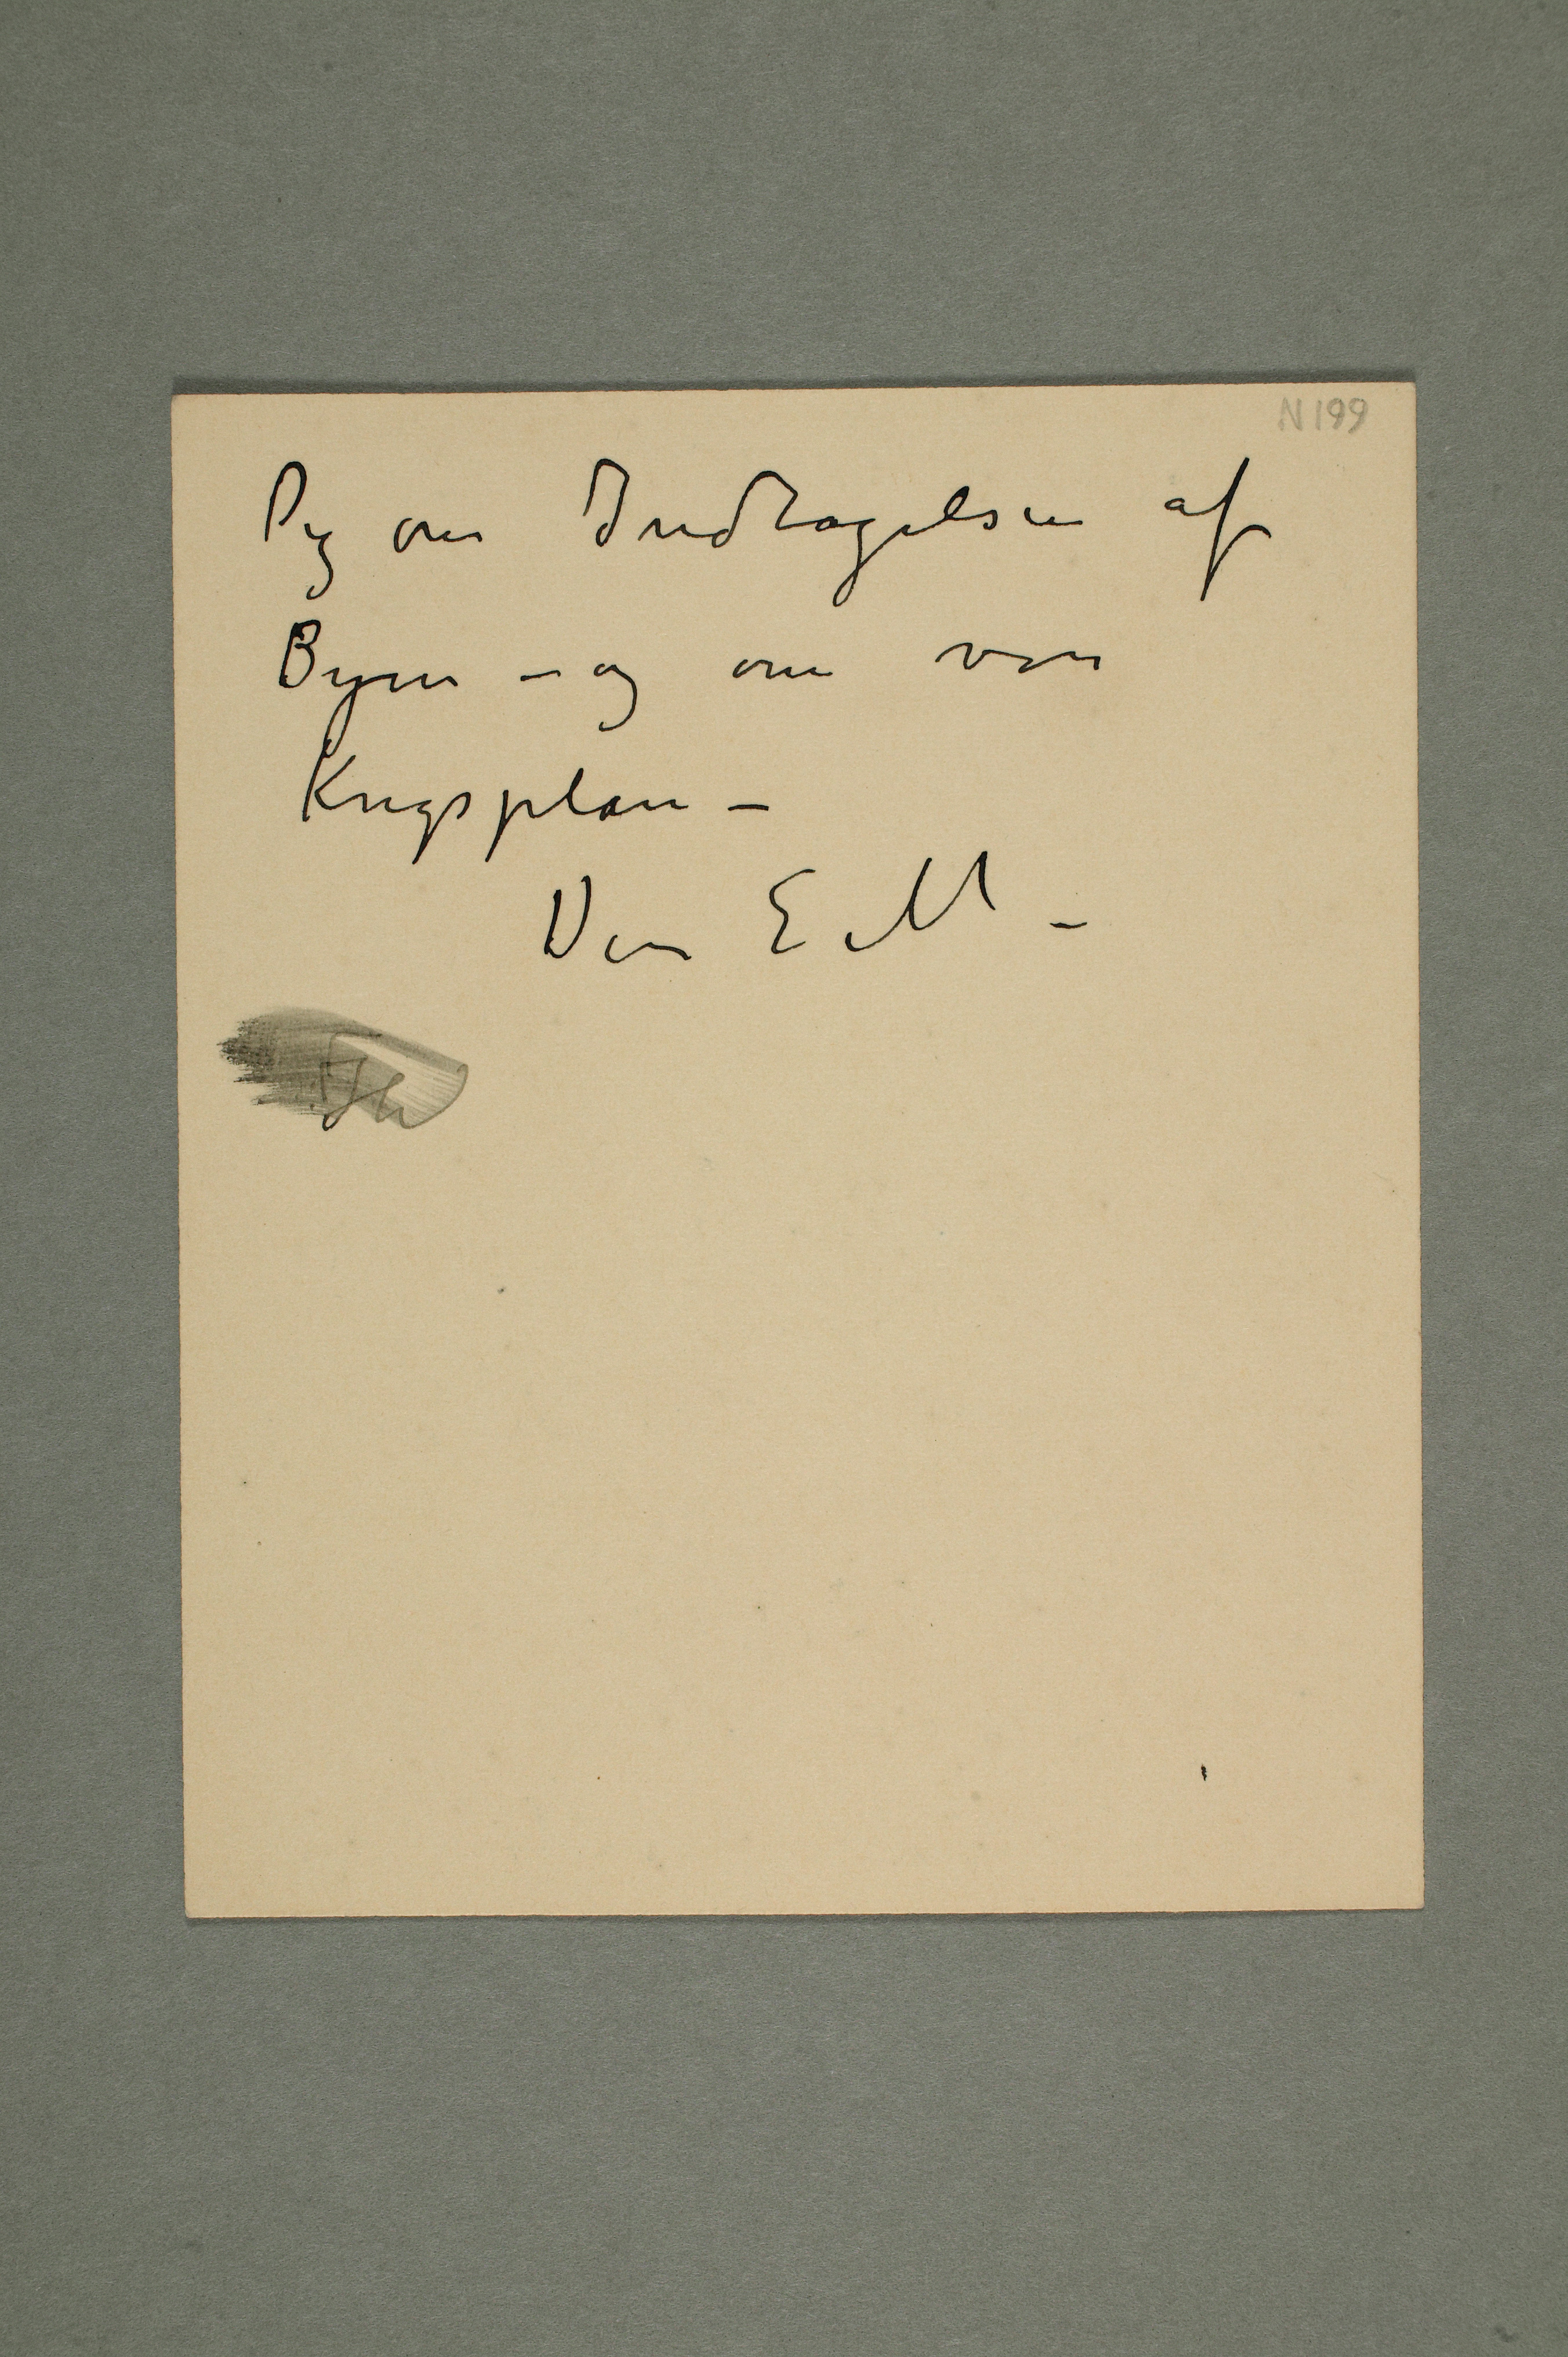 N199
Dig om Indtagelsen af
Byen – og om vor
Krigsplan –
Din E M –